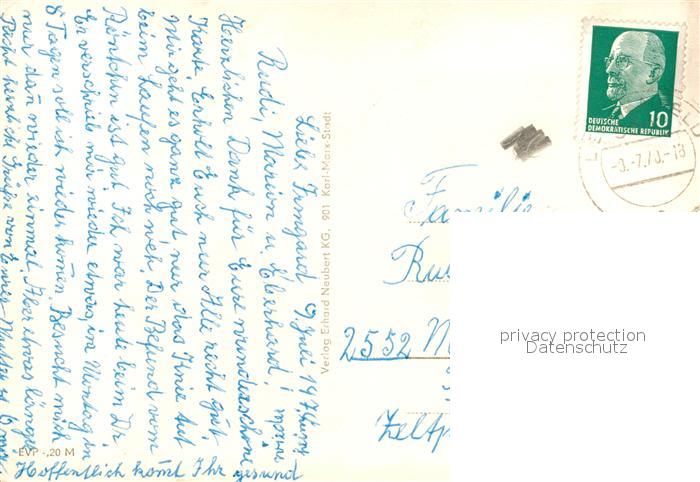 Liebe Irmgard 9. Juli 197
Rudi, Marion u. Eberhard!
Herzlichen Dank für Eure wunderschöne
Karte. Erholt Euch nur Alle recht gut.
Mir geht es ganz gut nur das Knie tut
beim Laufen noch weh. Der Befund vom
Röntgen ist gut. Ich war heute beim Dr.
Er verschrieb mir wieder etwas, in Montag in
8 Tagen soll ich wieder kommen. Besucht mich
nur dan wieder einmal. Aber etwas länger
Recht herzliche Grüße von Eurer Mutter u. Oma.
Hoffentlich komt Ihr gesund
EVP -,20 M
Verlag Erhard Neubert KG, 901 Karl-Marx-Stadt
DEUTSCHE
DEMOKRATISCHE REPUBLIK
10
Familie
Ru
2552 M
Zeltp
privacy protection
Datenschutz